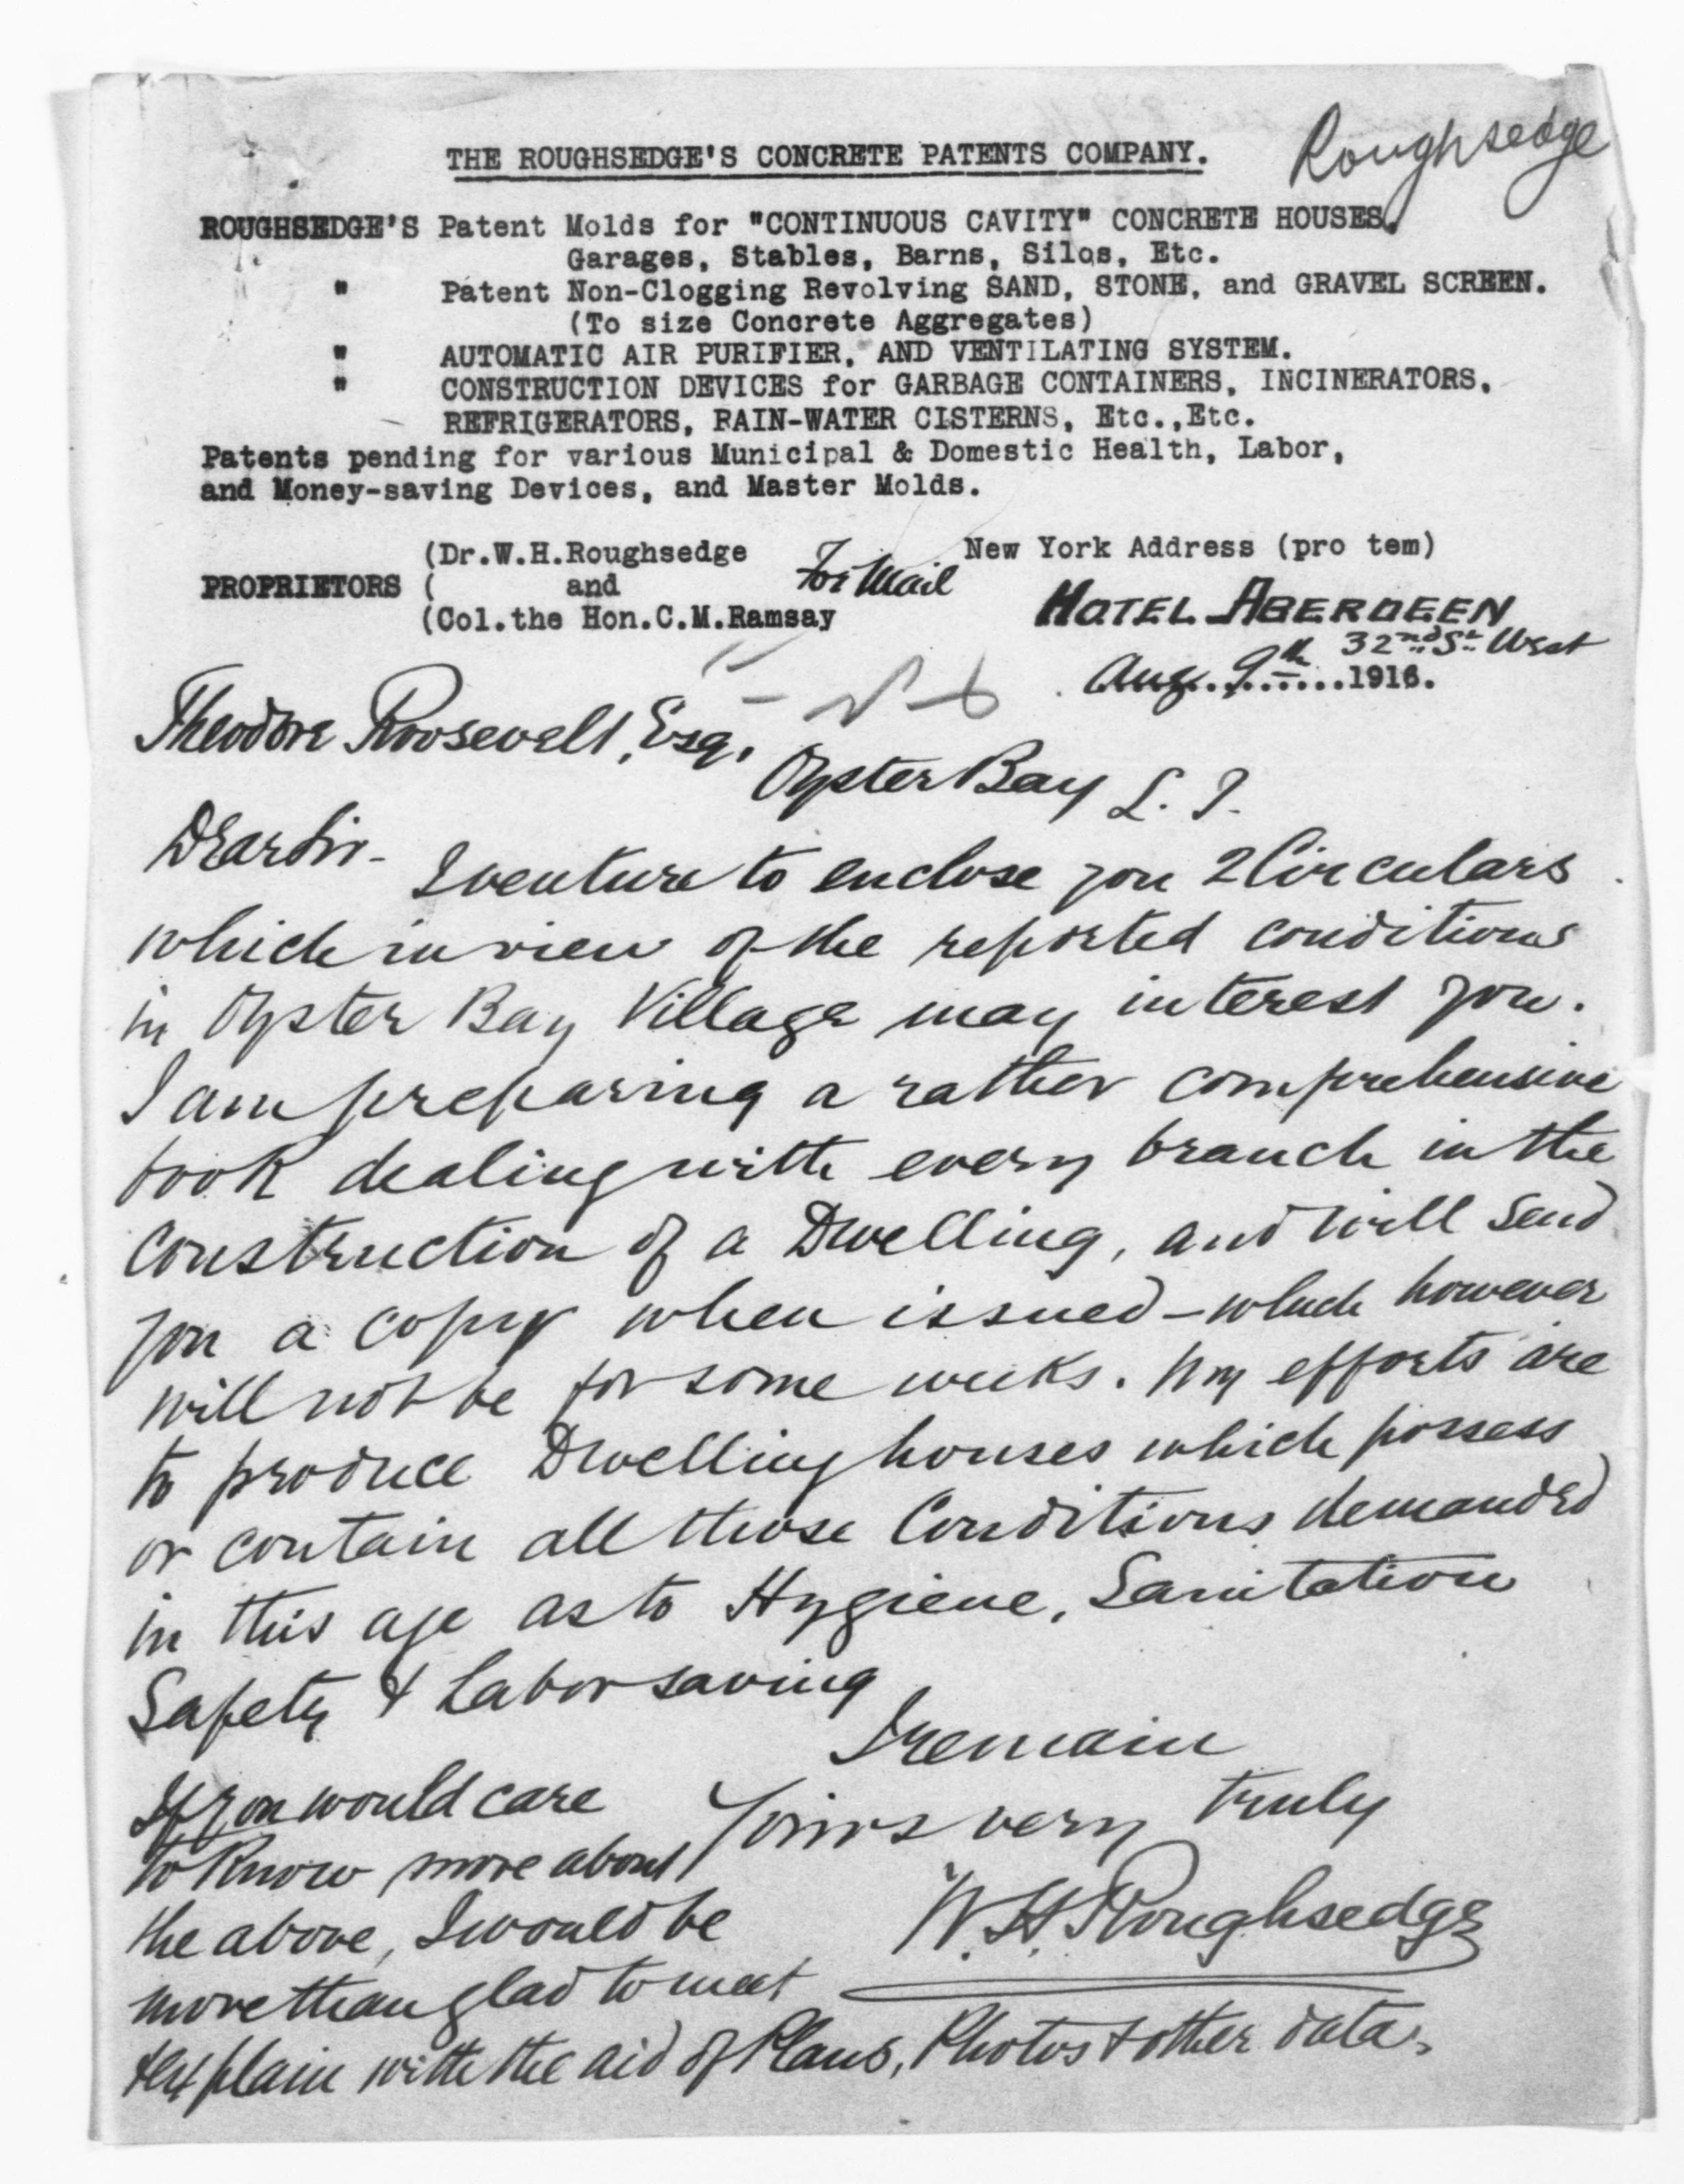 Roughsedge
THE ROUGHSEDGE'S CONCRETE PATENTS COMPANY.
ROUGHSEDGE'S Patent Molds for "CONTINUOUS CAVITY" CONCRETE HOUSES.
Garages, Stables, Barns, Silos, Etc.
" Patent Non-Clogging Revolving SAND, STONE, and GRAVEL SCREEN.
(To size Concrete Aggregates)
" AUTOMATIC AIR PURIFIER, AND VENTILATING SYSTEM.
" CONSTRUCTION DEVICES for GARBAGE CONTAINERS, INCINERATORS,
REFRIGERATORS, RAIN-WATER CISTERNS, Etc.,Etc.
Patents pending for various Municipal & Domestic Health, Labor,
and Money-saving Devices, and Master Molds.
(Dr.W.H.Roughsedge For Mail New York Address (pro tem)
PROPRIETORS ( and
(Col.the Hon.C.M.Ramsay HOTEL ABERDEEN
32nd St West
Aug. 9th 1916.
Theodore Roosevelt, Esq.
Oyster Bay L. I.
Dear Sir-
I venture to enclose you 2 Circulars
which in view of the reported conditions
in Oyster Bay Village may interest you.
I am preparing a rather comprehensive
book dealing with every branch in the
construction of a Dwelling, and will send
you a copy when issued - which however
will not be for some weeks. My efforts are
to produce Dwelling houses which possess
or contain all those Conditions demanded
in this age as to Hygiene, Sanitation
Safety & Labor saving
I remain
Yours very truly
W. H. Roughsedge
If you would care
to know more about
the above, I would be
more than glad to meet
& explain with the aid of Plans, Photos & other data.